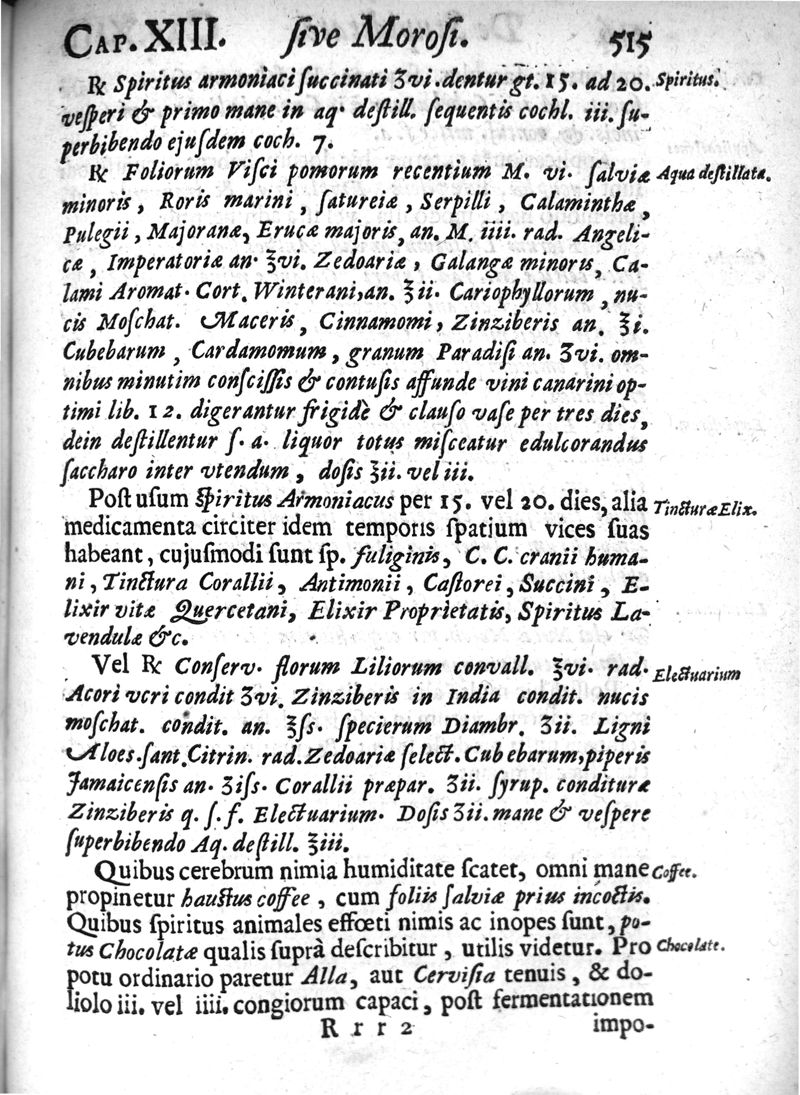 CAP. XIII. ſive Moroſi. 515
℞ Spiritus armoniaci ſuccinati ʒvi. dentur gt. 15. ad 20. Spiritus.
veſperi & primo mane in aq. deſtill. ſequentis cochl. iii. ſu-
perbibendo ejuſdem coch. 7.
℞ Foliorum Viſci pomorum recentium M. vi. ſalviæ Aqua deſtillata.
minoris, Roris marini, ſatureiæ, Serpilli, Calaminthæ,
Pulegii, Majoranæ, Erucæ majoris, an. M. iiii. rad. Angeli-
cæ, Imperatoriæ an. ℥vi. Zedoariæ, Galangæ minoris, Ca-
lami Aromat. Cort. Winterani, an. ℥ii. Cariophyllorum, nu-
cis Moſchat. Maceris, Cinnamomi, Zinziberis an. ℥i.
Cubebarum, Cardamomum, granum Paradiſi an. ʒvi. om-
nibus minutim conſciſſis & contuſis affunde vini canarini op-
timi lib. 12. digerantur frigidè & clauſo vaſe per tres dies,
dein deſtillentur ſ. a. liquor totus miſceatur edulcorandus
ſaccharo inter vtendum, doſis ℥ii. vel iii.
Poſt uſum Spiritus Armoniacus per 15. vel 20. dies, alia Tincturæ Elix.
medicamenta circiter idem temporis ſpatium vices ſuas
habeant, cujuſmodi ſunt ſp. fuliginis, C. C. cranii huma-
ni, Tinctura Corallii, Antimonii, Caſtorei, Succini, E-
lixir vitæ Quercetani, Elixir Proprietatis, Spiritus La-
vendulæ &c.
Vel ℞ Conſerv. florum Liliorum convall. ℥vi. rad. Electuarium
Acori veri condit ʒvi. Zinziberis in India condit. nucis
moſchat. condit. an. ℥ſs. ſpecierum Diambr. ʒii. Ligni
Aloes. ſant. Citrin. rad. Zedoariæ ſelect. Cubebarum, piperis
Jamaicenſis an. ʒiſs. Corallii præpar. ʒii. ſyrup. condituræ
Zinziberis q. ſ. f. Electuarium. Doſis ʒii. mane & veſpere
ſuperbibendo Aq. deſtill. ℥iii.
Quibus cerebrum nimia humiditate ſcatet, omni mane Coffee.
propinetur hauſtus coffee, cum foliis ſalviæ prius incoctis.
Quibus ſpiritus animales effœti nimis ac inopes ſunt, po-
tus Chocolatæ qualis ſuprà deſcribitur, utilis videtur. Pro Chocolate.
potu ordinario paretur Alla, aut Cerviſia tenuis, & do-
liolo iii. vel iiii. congiorum capaci, poſt fermentationem
R r r 2 impo-